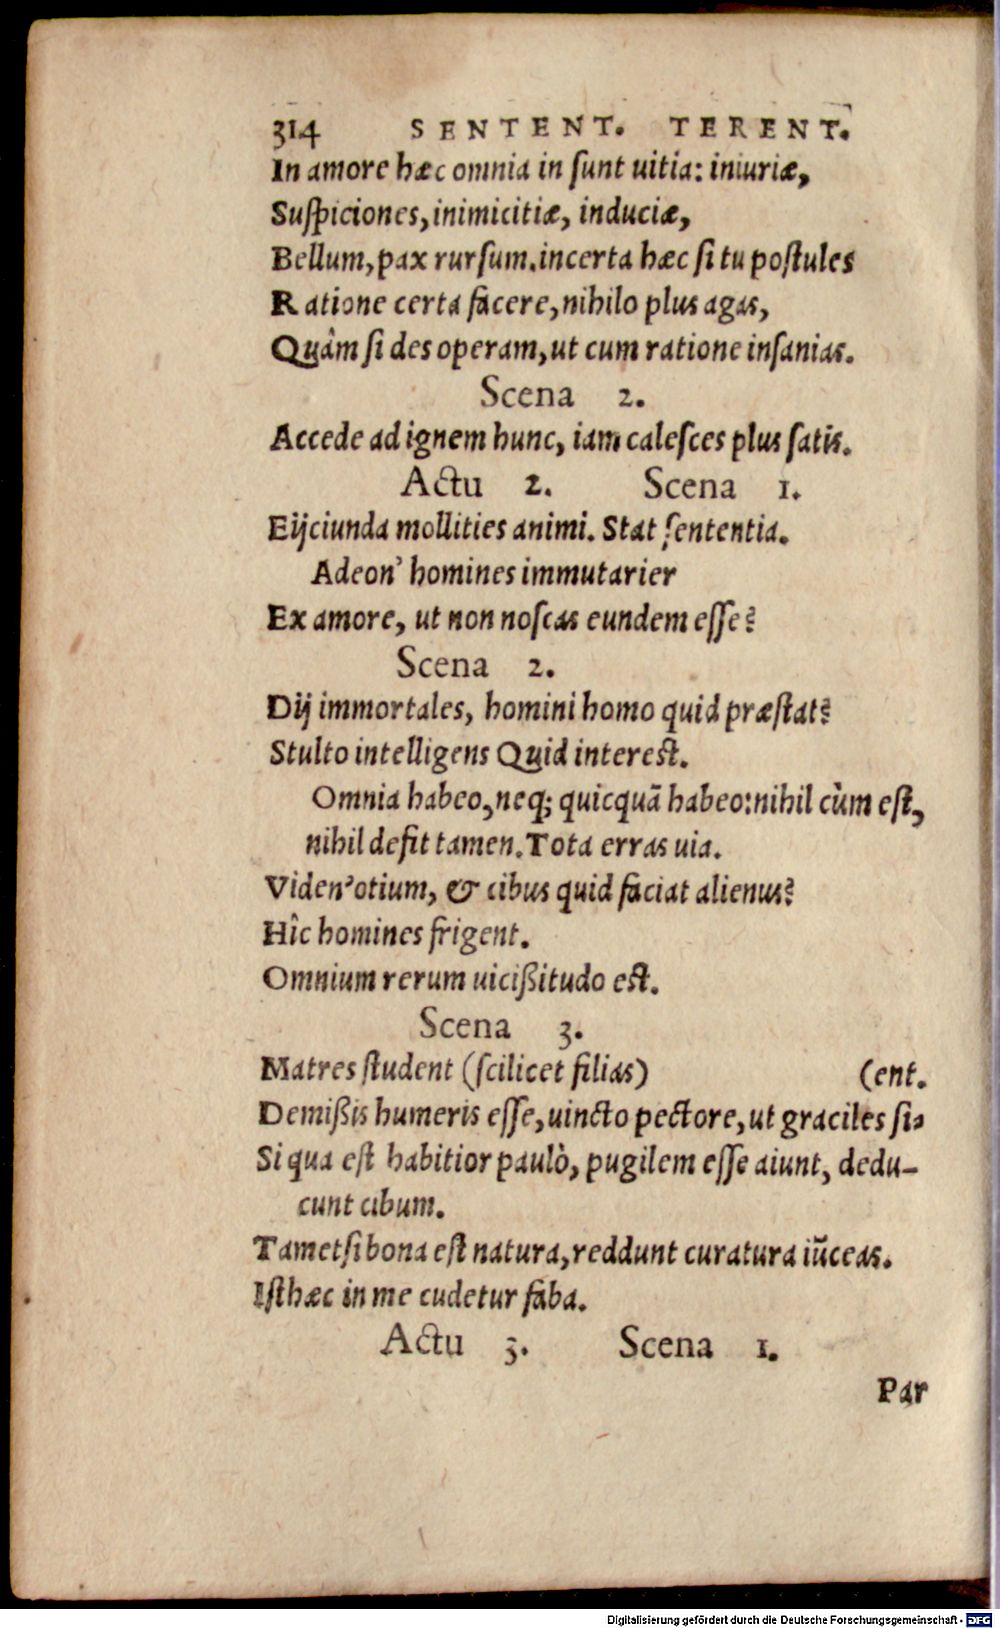 314 SENTENT. TERENT.
In amore hæc omnia in sunt uitia: iniuriæ,
Suſpiciones, inimicitiæ, induciæ,
Bellum, pax rurſum. incerta hæc ſi tu poſtules
Ratione certa facere, nihilo plus agas,
Quâm ſi des operam, ut cum ratione inſanias.
Scena 2.
Accede ad ignem hunc, iam caleſces plus ſatis.
Actu 2. Scena 1.
Eijciunda mollities animi. Stat ſententia.
Adeon' homines immutarier
Ex amore, ut non noſcas eundem eſſe?
Scena 2.
Dij immortales, homini homo quid præſtat?
Stulto intelligens Quid intereſt.
Omnia habeo, neq; quicquā habeo: nihil cùm eſt,
nihil defit tamen. Tota erras uia.
Viden' otium, & cibus quid faciat alienus?
Hîc homines frigent.
Omnium rerum uicißitudo eſt.
Scena 3.
Matres ſtudent (ſcilicet filias) (ent.
Demißis humeris eſſe, uincto pectore, ut graciles ſi-
Si qua eſt habitior paulò, pugilem eſſe aiunt, dedu-
cunt cibum.
Tametſi bona eſt natura, reddunt curatura iūceas.
Iſthæc in me cudetur faba.
Actu 3. Scena 1.
Par
Digitalisierung gefördert durch die Deutsche Forschungsgemeinschaft - DFG